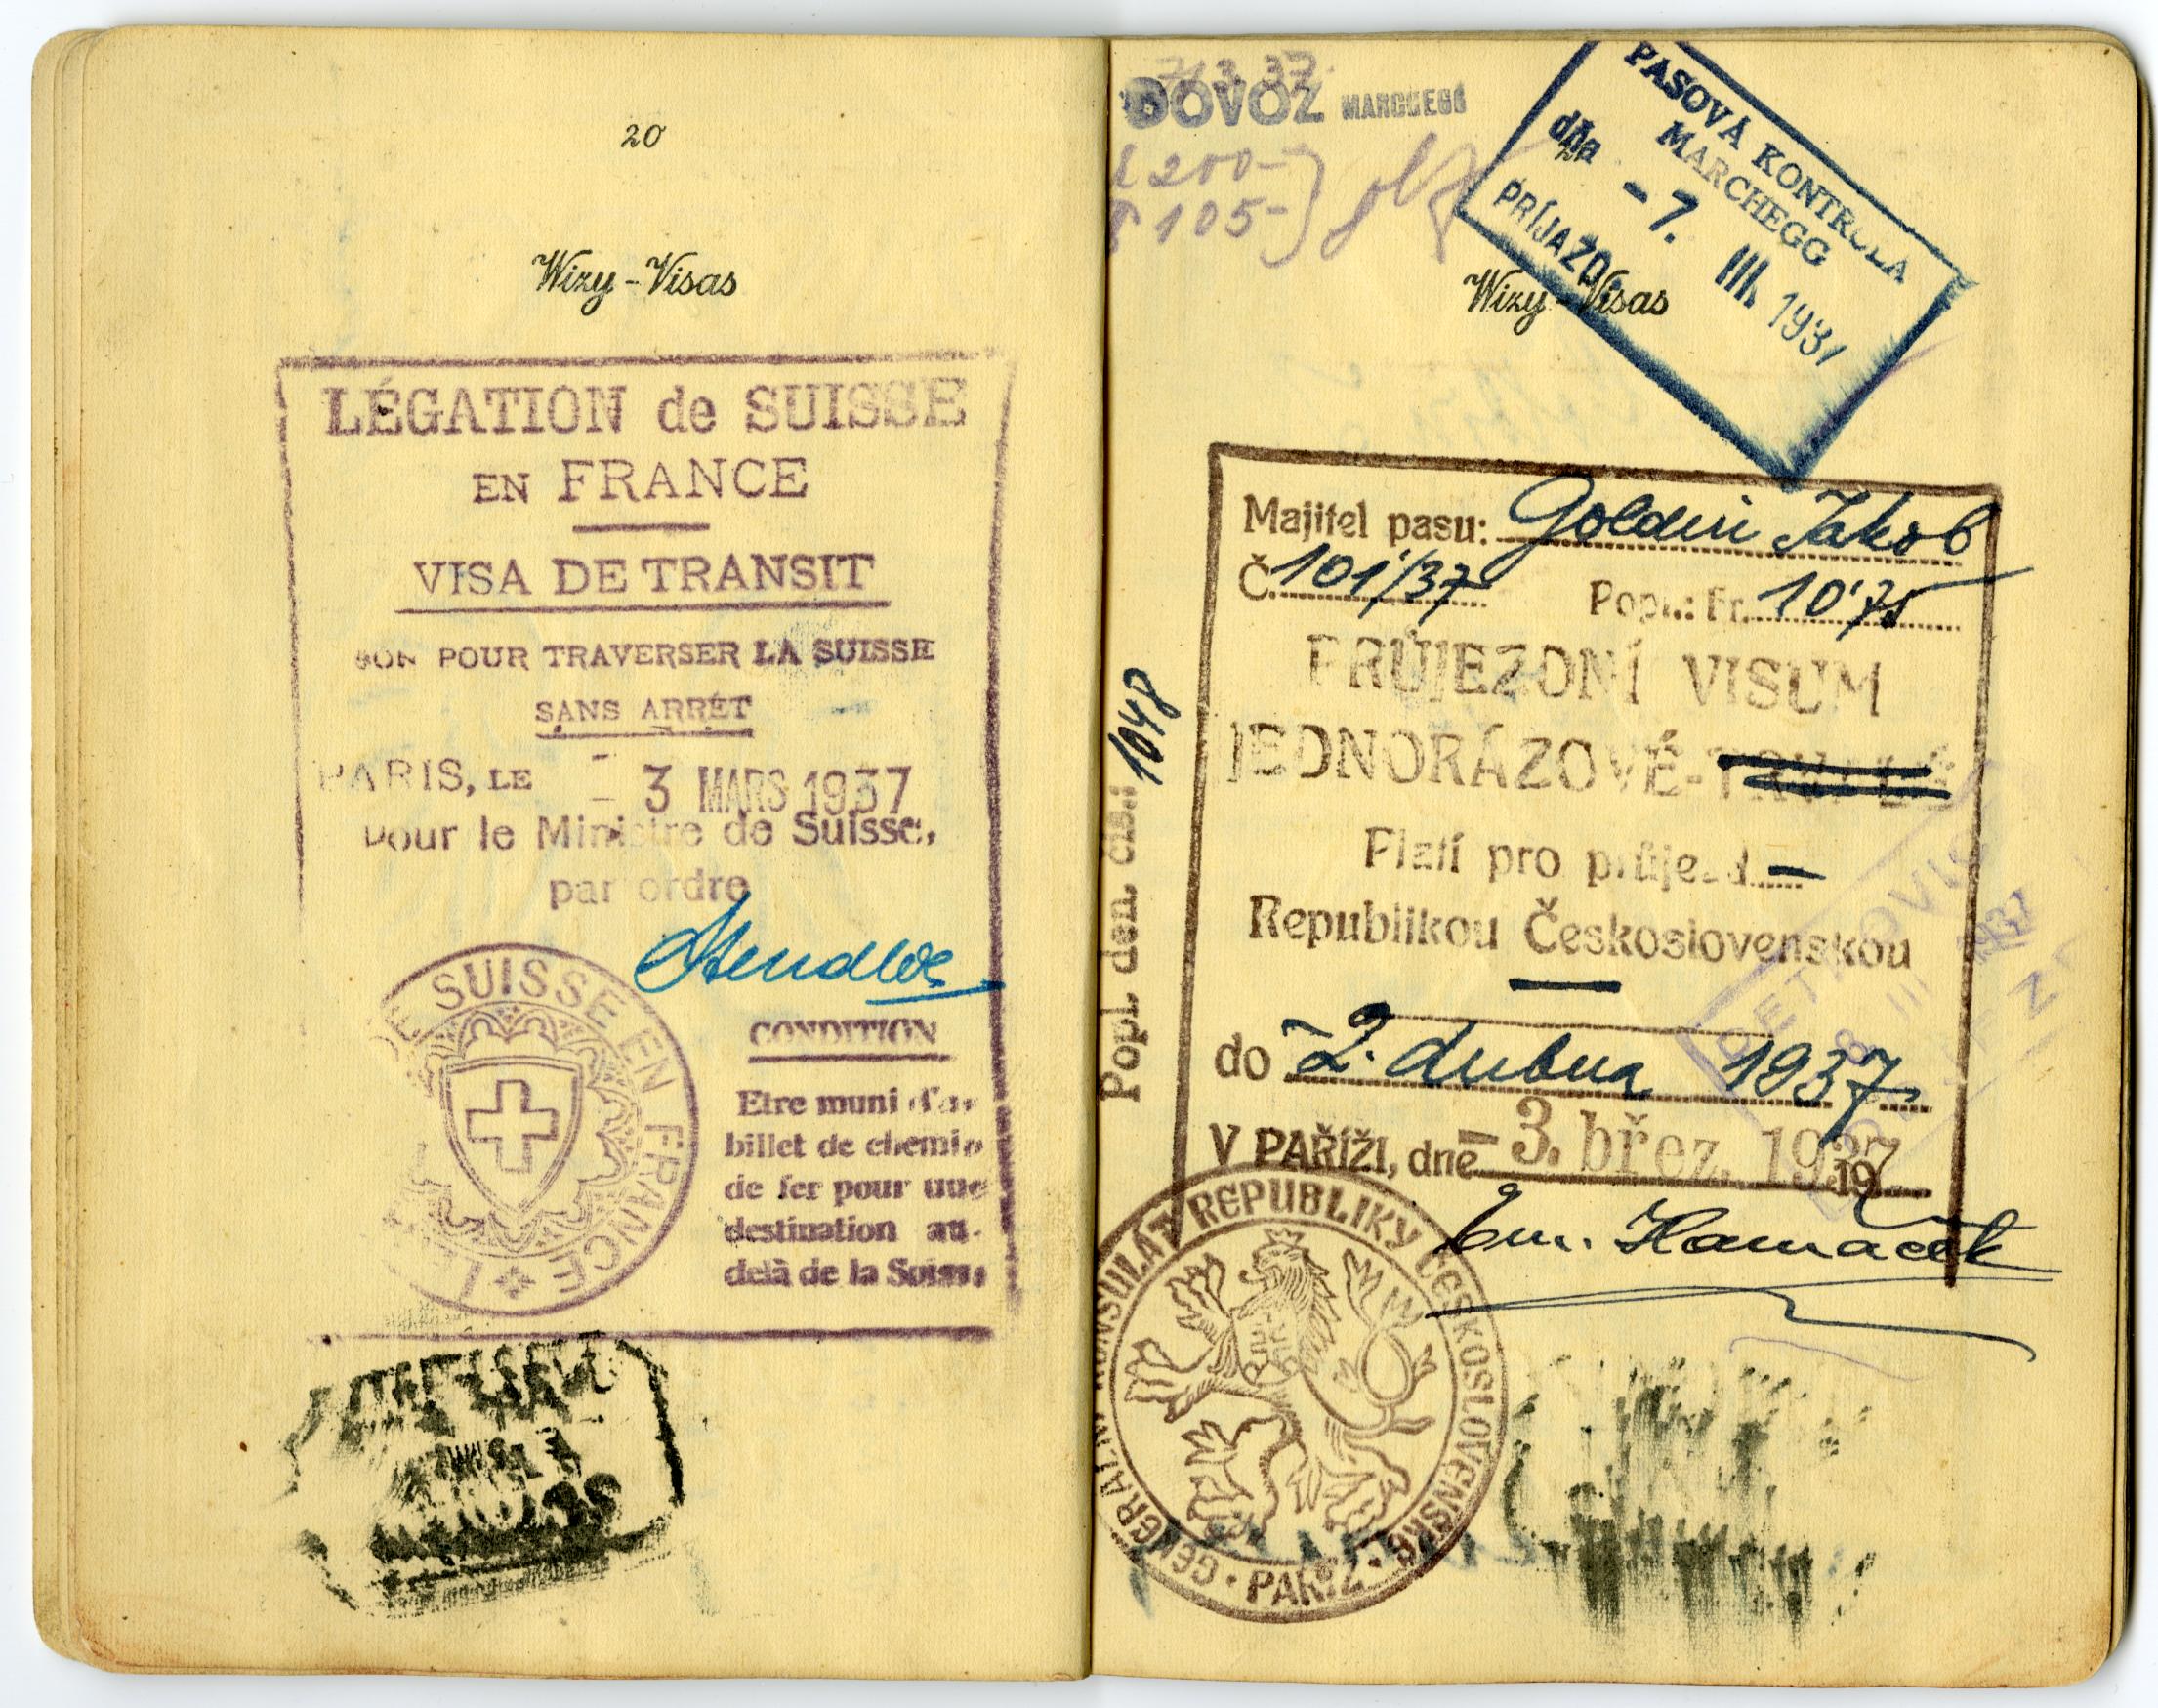 20
Wizy-Visas
LÉGATION de SUISSE
EN FRANCE
VISA DE TRANSIT
BON POUR TRAVERSER LA SUISSE
SANS ARRÊT
PARIS, LE - 3 MARS 1937
Pour le Ministre de Suisse,
par ordre
DE SUISSE EN FRANCE
CONDITION
Etre muni d'un
billet de chemin
de fer pour une
destination au-
delà de la Suisse
7 3 37.
DOVOZ MARCHEGG
200-
105-
PASOVÁ KONTROLA
MARCHEGG
dňa -7. III. 1937
PRÍJAZD
Wizy-Visas
Majitel pasu: Jakob
Č. 101/37 Popl.: Fr. 10'75
PRŮJEZDNÍ VISUM
JEDNORÁZOVÉ-TRVALÉ
Platí pro průjezd
Republikou Československou
do 2. dubna 1937
V PAŘÍŽI, dne -3. břez. 1937
19
Popl. den. čís.: 1048
GENERÁLNÍ KONSULÁT REPUBLIKY ČESKOSLOVENSKÉ · PAŘÍŽ ·
8 III 1937